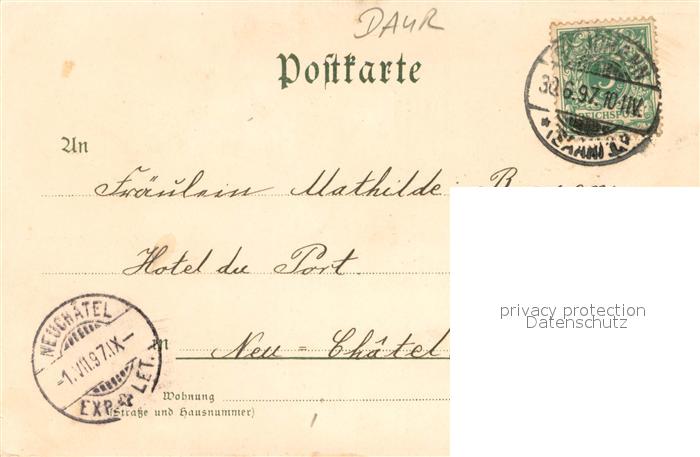 DAUR
Postkarte
30.6.97.10-11V.
* (SAAR) 1.
REICHSPOST
An
Fräulein Mathilde
Hotel du Port.
privacy protection
Datenschutz
NEUCHÂTEL
-1.VII.97.IX-
EXP. LET.
in Neu=Châtel
Wohnung
(Straße und Hausnummer)